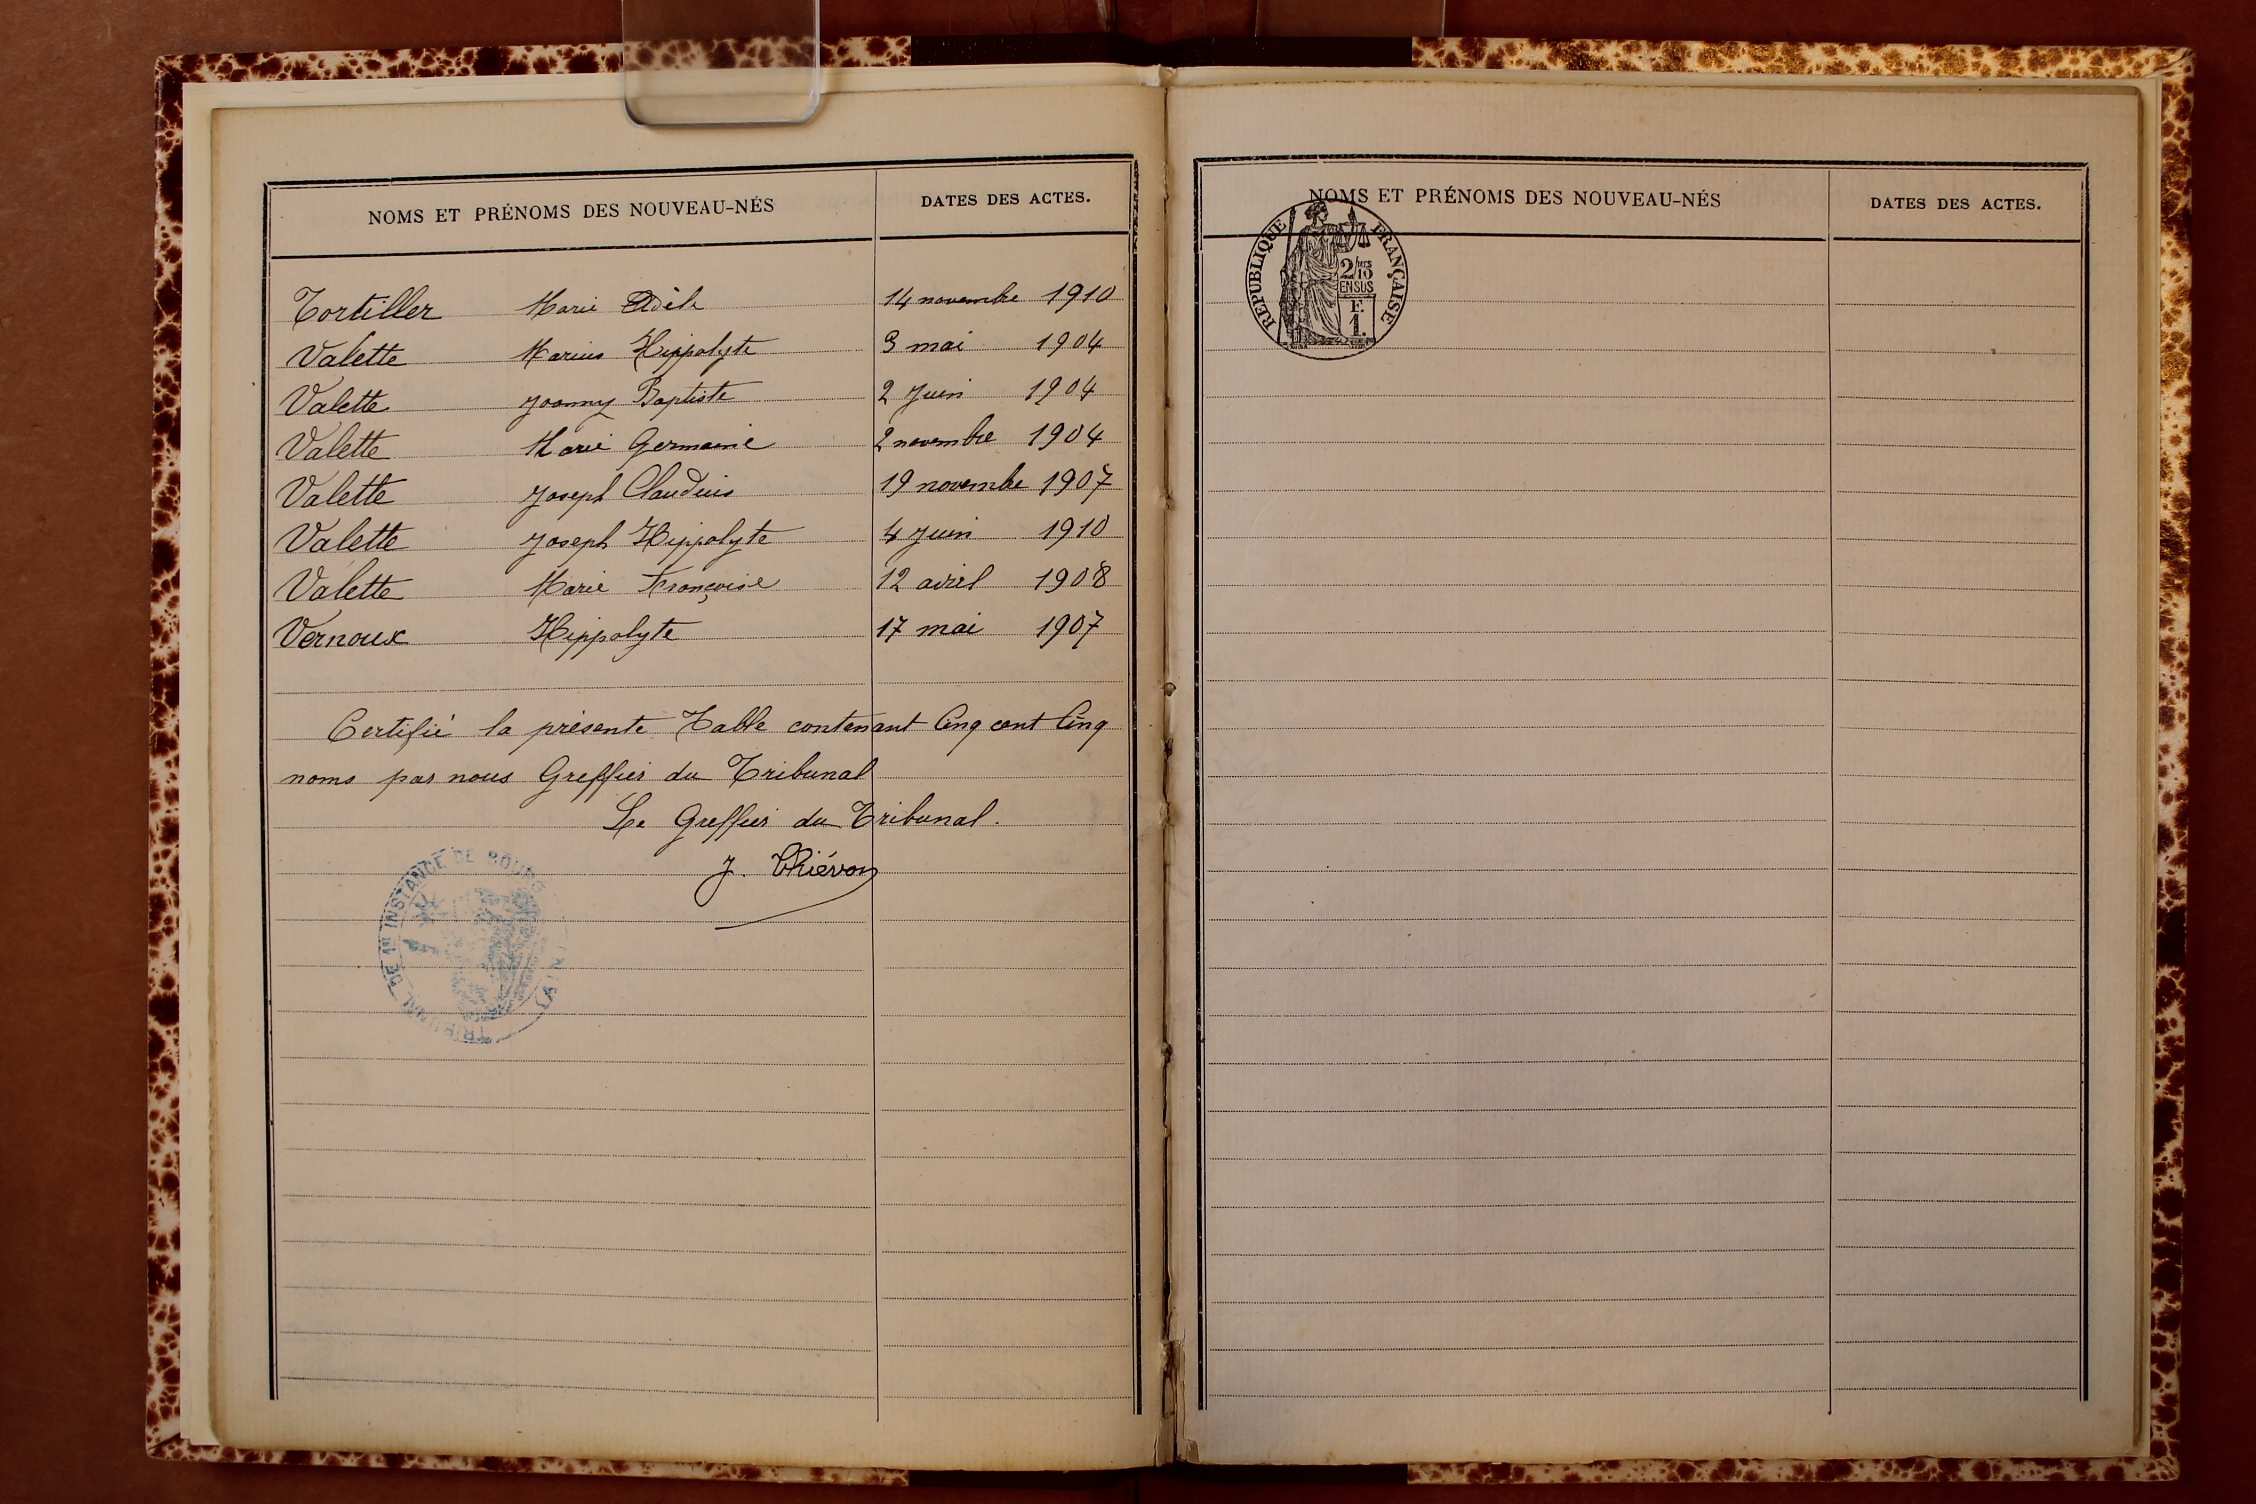 NOMS ET PRÉNOMS DES NOUVEAU-NÉS DATES DES ACTES.
Tortiller Marie Adèle 14 novembre 1910
Valette Marius Hippolyte 3 mai 1904
Valette Joanny Baptiste 2 Juin 1904
Valette Marie Germaine 2 novembre 1904
Valette Joseph Claudius 19 novembre 1907
Valette Joseph Hippolyte 4 Juin 1910
Valette Marie Françoise 12 avril 1908
Vernoux Hippolyte 17 mai 1907
Certifié la présente Table contenant Cinq cent Cinq
noms par nous Greffier du Tribunal
Le Greffier du Tribunal.
J. Thiévon
TRIBUNAL DE 1re INSTANCE DE BOURG
NOMS ET PRÉNOMS DES NOUVEAU-NÉS DATES DES ACTES.
RÉPUBLIQUE FRANÇAISE
2/10
EN SUS
F.
1.